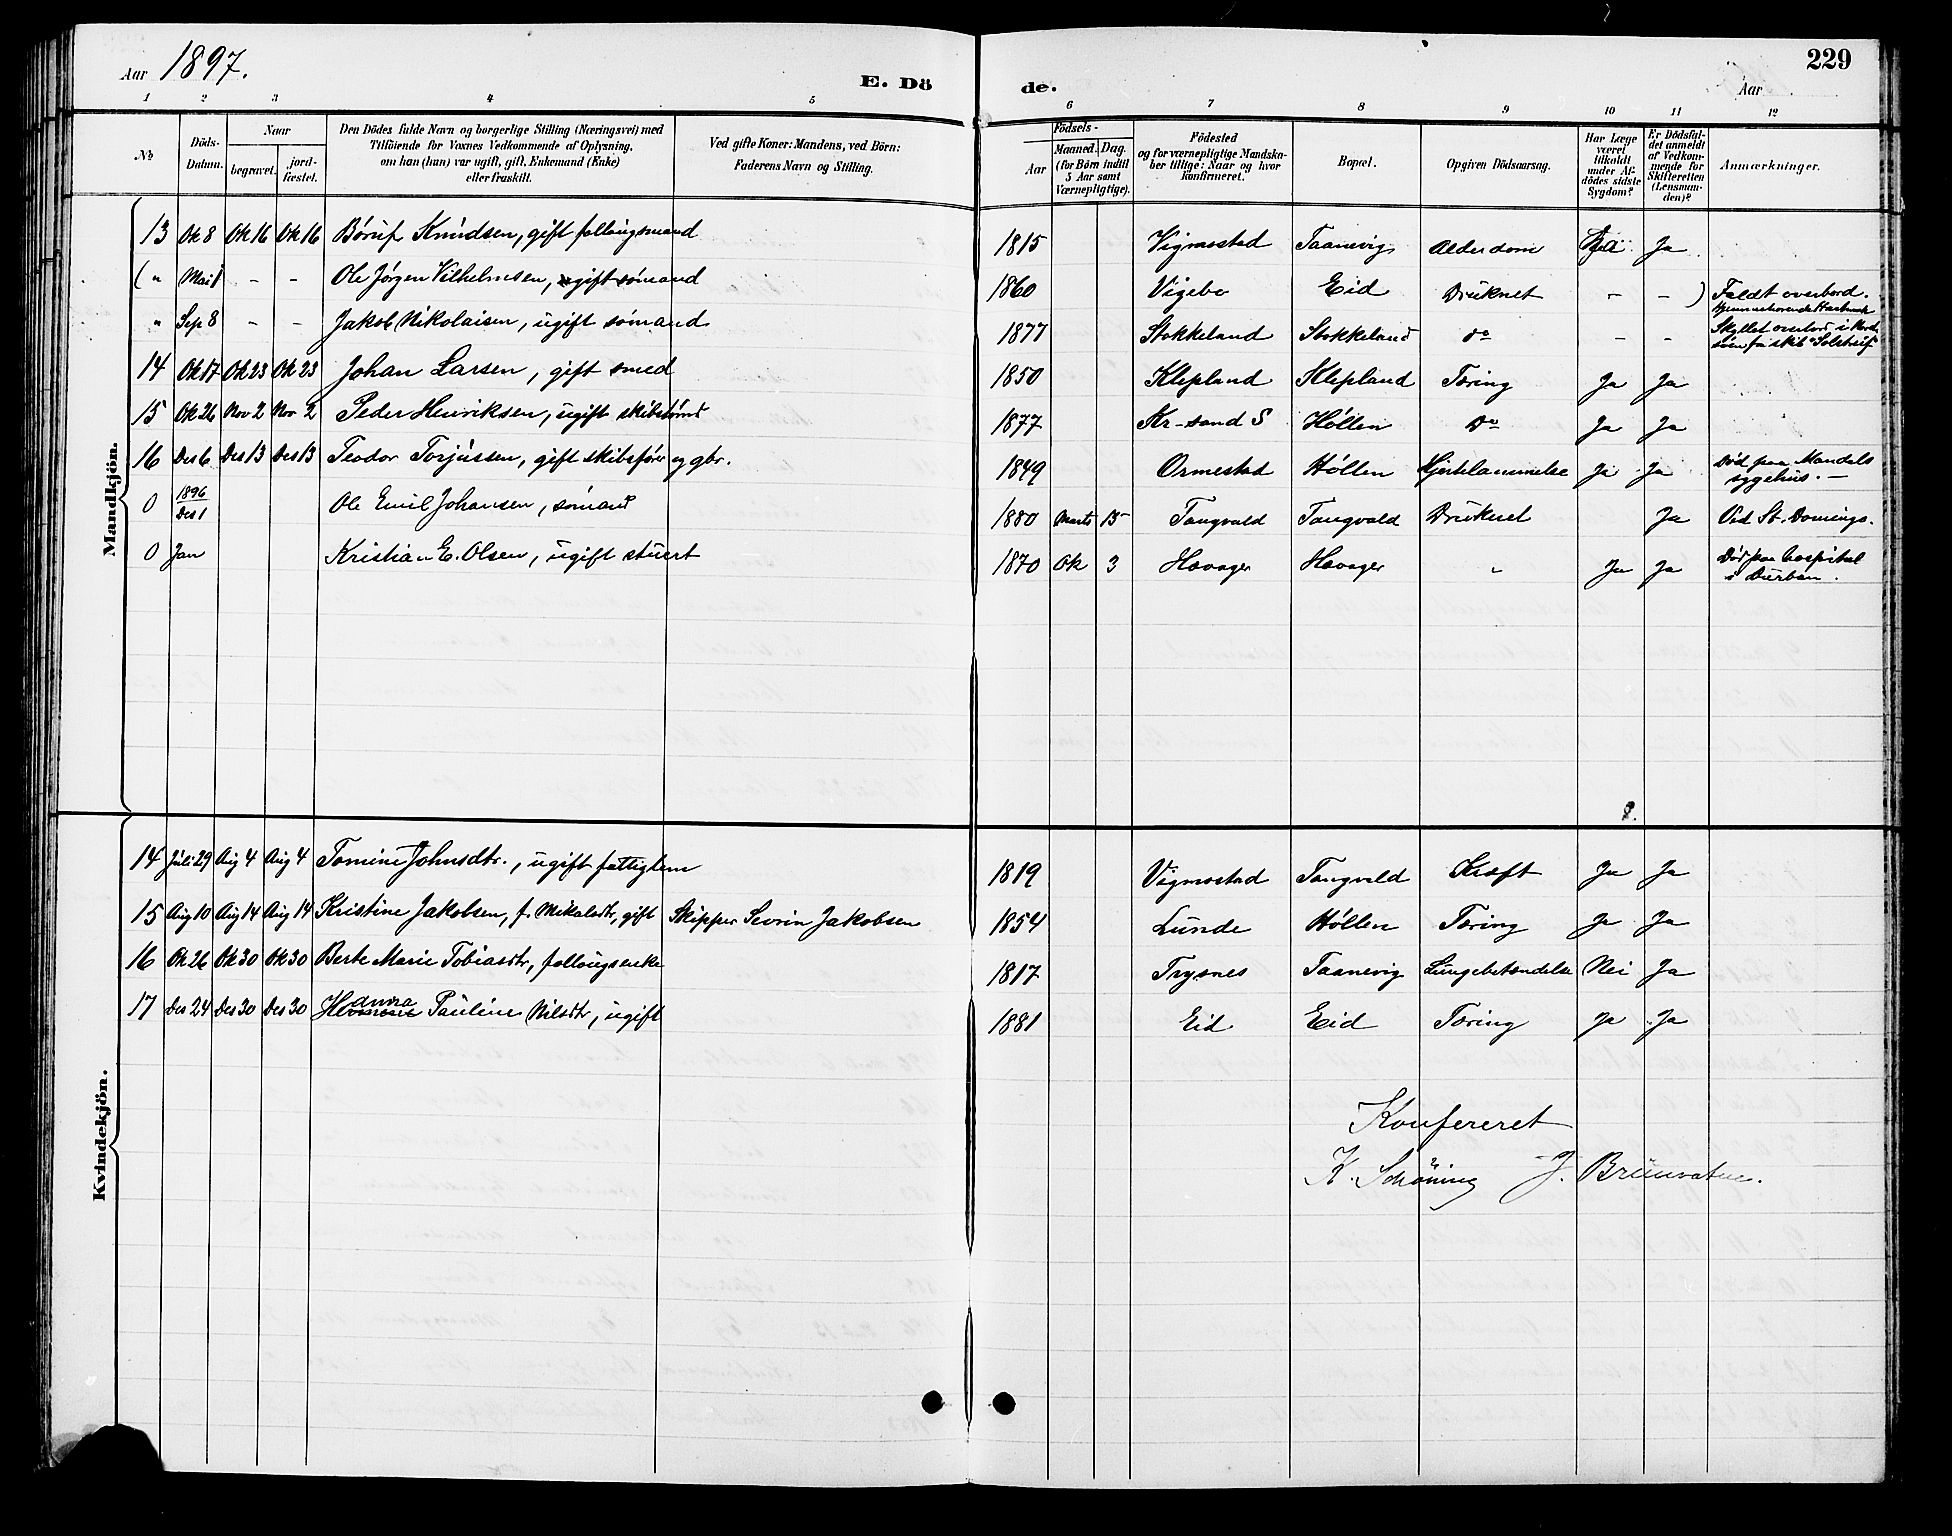 229
Aar 1897.
E. Dö
de.
Aar
1 2 3 4 5 6 7 8 9 10 11 12
№
Döds-Datum.
Naar
begravet.
jord-fæstet.
Den Dödes fulde Navn og borgerlige Stilling (Næringsvei) med
Tilföiende for Voxnes Vedkommende af Oplysning,
om han (hun) var ugift, gift, Enkemand (Enke)
eller fraskilt.
Ved gifte Koner: Mandens, ved Börn:
Faderens Navn og Stilling.
Födsels-
Aar
Maaned. Dag.
(for Börn indtil
5 Aar samt
Værnepligtige).
Födested
og for værnepligtige Mandska-
ber tillige: Naar og hvor
konfirmeret.
Bopæl.
Opgiven Dödsaarsag.
Har Læge
været
tilkaldt
under Af-
dödes sidste
Sygdom?
Er Dödsfal-
det anmeldt
af Vedkom-
mende for
Skifteretten
(Lensman-
den)?
Anmærkninger.
Mandkjön.
13 Ok 8 Ok 16 Ok 16 Børuf Knudsen, gift follaugsmand 1815 Vigmostad Taanevig Alderdom Ja
( " Mai 1 - - Ole Jørgen Vilhelmsen, gift sømand 1860 Vigebo Eid Druknet - - ) Faldt overbord.
" Sep 8 - - Jakob Nikolaisen, ugift sømand 1877 Stokkeland Stokkeland do - - Skyllet overbord i Nord-
søen fra skib "Solstrif"
14 Ok 17 Ok 23 Ok 23 Johan Larsen, gift smed 1850 Klepland Klepland Tæring Ja Ja
15 Ok 26 Nov 2 Nov 2 Peder Henriksen, ugift 1877 Kr-sand S Høllen Do Ja Ja
16 Des 6 Des 13 Des 13 Teodor Torjussen, gift skibsfører og gbr. 1849 Ormestad Høllen Hjertelammelse Ja Ja Død paa Mandals
sygehus. -
0 1896 Des 1 Ole Emil Johansen, sømand 1880 Marts 15 Tangvald Tangvald Druknet Ja Ved St. Domingo.
0 Jan Kristian E. Olsen, ugift stuert 1870 Ok 3 Havager Havager " Ja Ja Død paa hospital
i Durban.
Kvindekjön.
14 Juli 29 Aug 4 Aug 4 Tomine Johnsdtr., ugift fattiglem 1819 Vigmostad Tangvald Kræft Ja Ja
15 Aug 10 Aug 14 Aug 14 Kristine Jakobsen, f. Mikalsdtr, gift Skipper Sevrin Jakobsen 1854 Lunde Høllen Tæring Ja Ja
16 Ok 26 Ok 30 Ok 30 Berte Marie Tobiasdtr, follaugsenke 1817 Trysnes Taanevig Lungebetændelse Nei Ja
17 Des 24 Des 30 Des 30 Pauline Nilsdtr, ugift 1881 Eid Eid Tæring Ja Ja
Konfereret
K. Schøning J. Brunvatne.